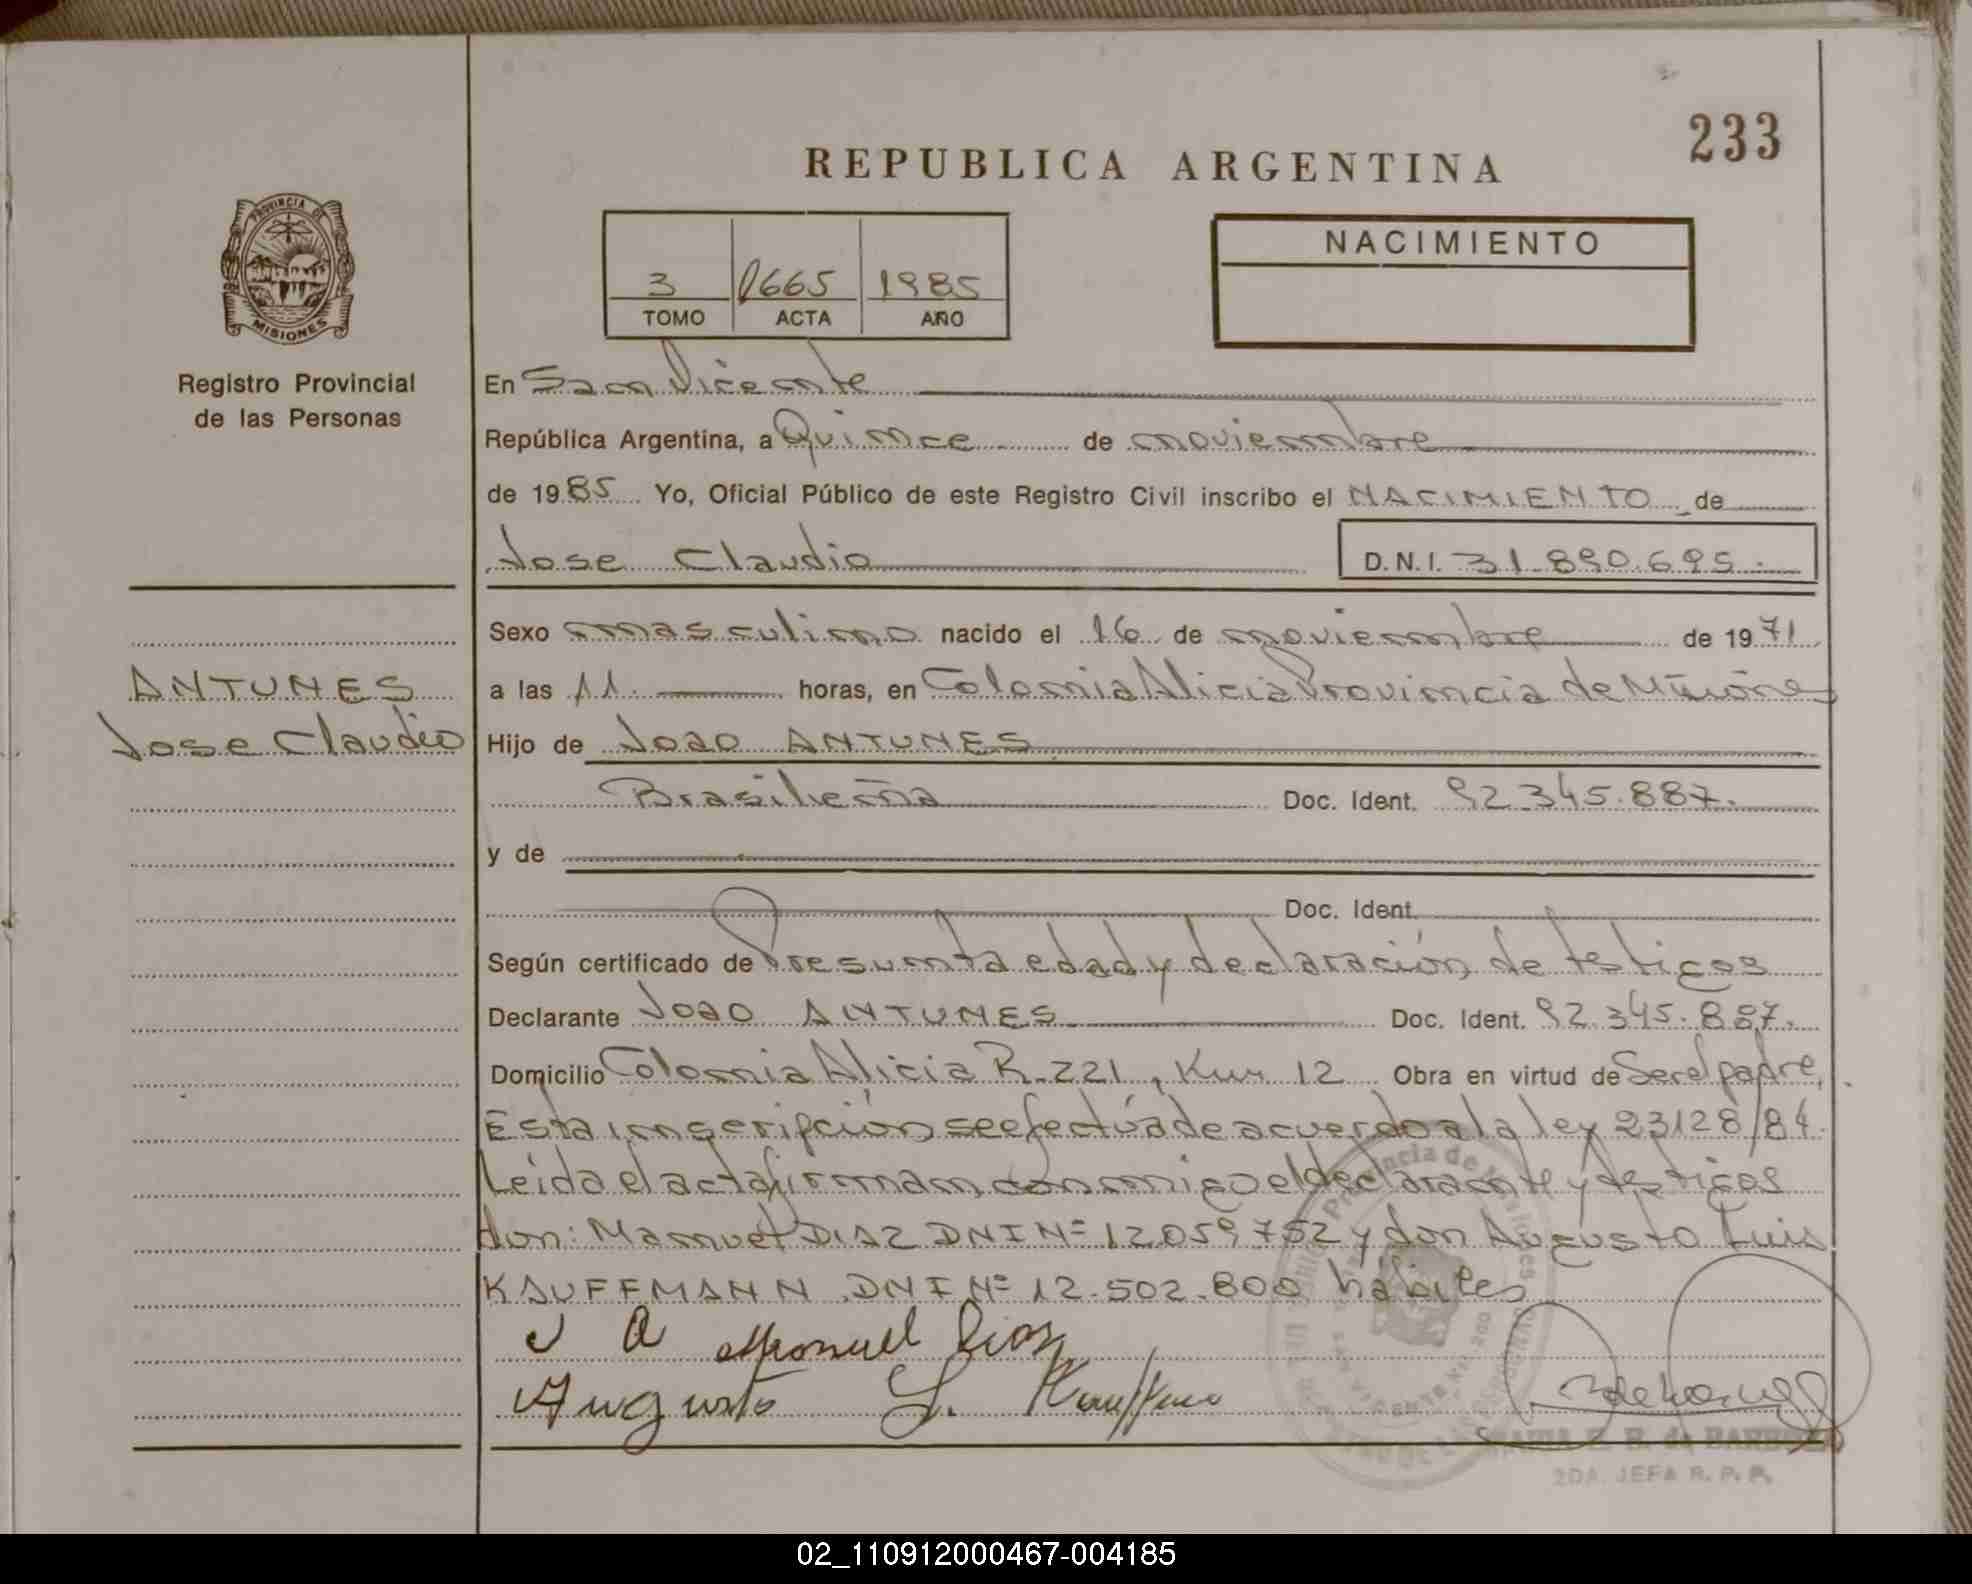 233
REPUBLICA ARGENTINA
PROVINCIA DE
MISIONES
NACIMIENTO
3 0665 1985
TOMO ACTA AÑO
Registro Provincial
de las Personas
En San Vicente
República Argentina, a Quince de noviembre
de 1985 Yo, Oficial Público de este Registro Civil inscribo el NACIMIENTO de
Jose Claudio D.N.I. 31.890.695.
Sexo masculino nacido el 16 de noviembre de 1971
ANTUNES
Jose Claudio
a las 11. horas, en Colonia Alicia Provincia de Misiones
Hijo de Joao ANTUNES
Brasileña Doc. Ident. 92.345.887.
y de
Doc. Ident.
Según certificado de Presunta edad y declaración de testigos
Declarante Joao ANTUNES Doc. Ident. 92.345.887.
Domicilio Colonia Alicia R. 221, Km 12 Obra en virtud de Ser el padre,
Esta inscripción se efectúa de acuerdo a la ley 23128/84.
Leída el acta firman conmigo el declarante y testigos
don: Manuel DIAZ DNI Nº 12.059.752 y don Augusto Luis
KAUFFMANN DNI Nº 12.502.800 hábiles
J A Manuel Dias
Augusto L. Kauffman
MARIA E. B. de
2DA. JEFA R. P. P.
02_110912000467-004185